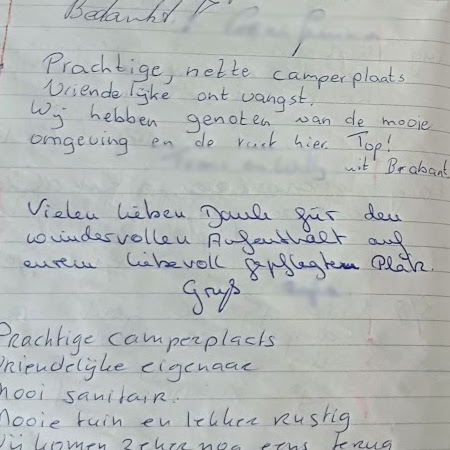 Bedankt!
Prachtige, nette camperplaats
Vriendelijke ontvangst.
Wij hebben genoten van de mooie
omgeving en de rust hier Top!
uit Brabant
Vielen lieben Dank für den
wundervollen Aufenthalt auf
eurem liebevoll gepflegten Platz.
Gruß
Prachtige camperplaats
Vriendelijke eigenaar
mooi sanitair.
Mooie tuin en lekker rustig!
Wij komen zeker nog eens terug